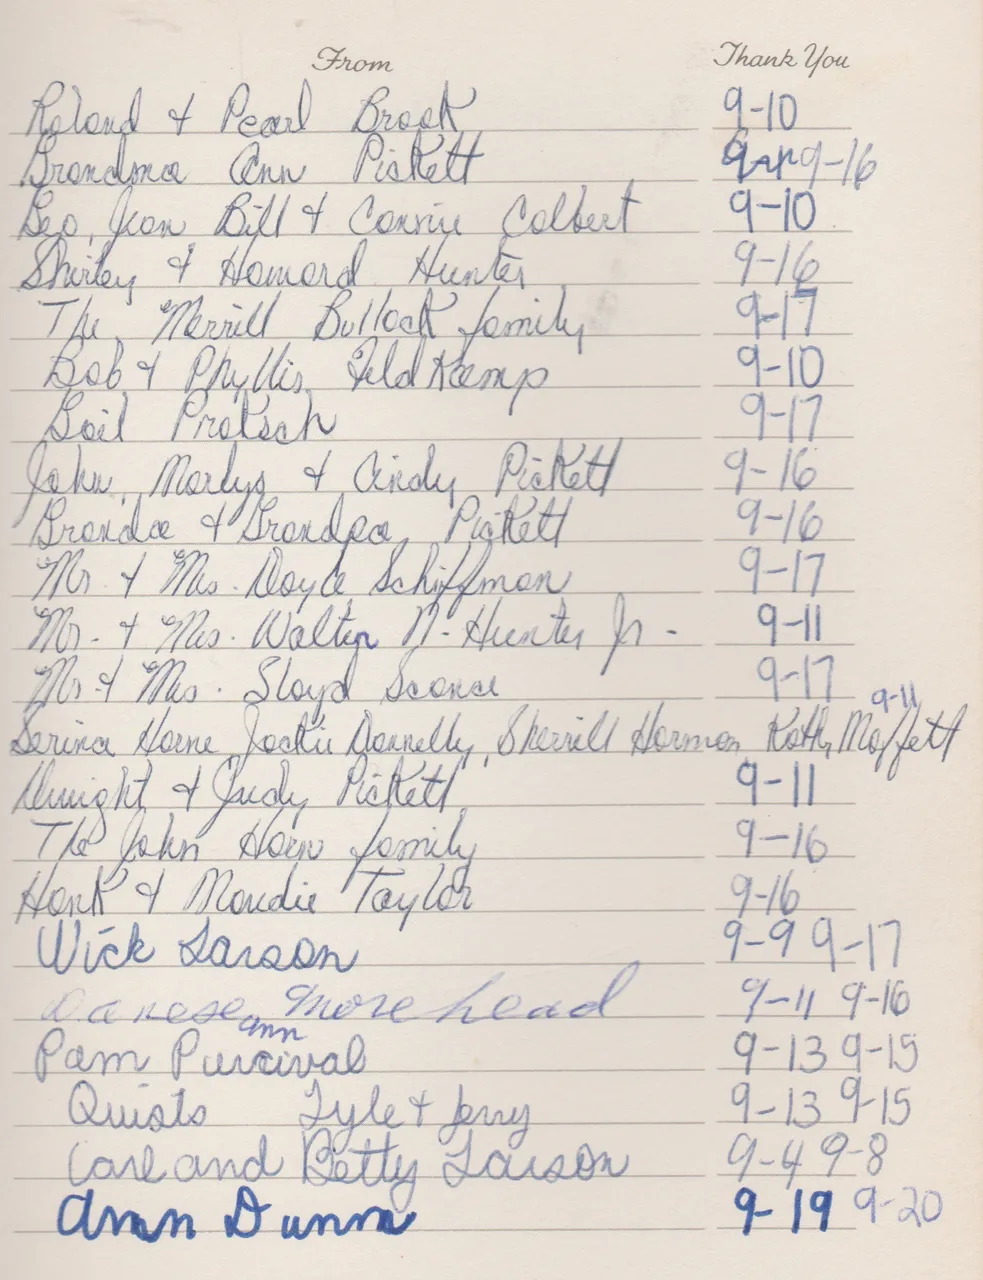 From Thank You
Roland & Pearl Brook 9-10
Grandma Ann Pickett 9-16
Geo, Jean Bill & Connie Colbert 9-10
Shirley & Howard Hunter 9-16
The Merrill Bullock family 9-17
Bob & Phyllis Feldkamp 9-10
Gail Protsch 9-17
John, Marlys & Cindy Pickett 9-16
& Grandpa Pickett 9-16
Mr. & Mrs. Doyle Schiffman 9-17
Mr. & Mrs. Walter N. Hunter Jr. 9-11
Mr & Mrs. Sloyd Sconce 9-17
9-11
Serina Horne Jackie Donnelly, Sherrill Harmon Kathy Moffett
Dwight & Judy Pickett 9-11
The John Horn family 9-16
Hank & Maudie Taylor 9-16
Wick Larson 9-9 9-17
Danese Morehead 9-11 9-16
Ann
Pam Purcival 9-13 9-15
Quists Lyle & Jerry 9-13 9-15
Carl and Betty Larson 9-4 9-8
Ann Dunn 9-19 9-20